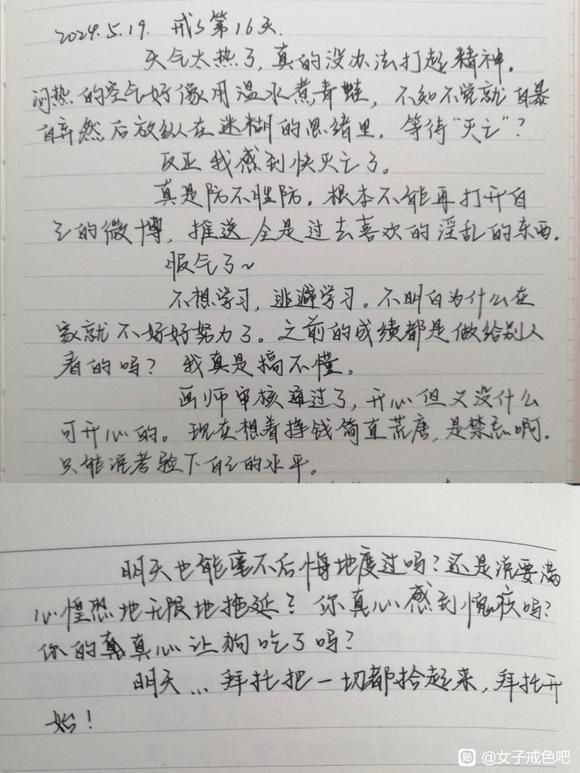 2024.5.19. 戒s第16天.
天气太热了,真的没办法打起精神。
闷热的空气好像用温水煮青蛙,不知不觉就自暴
自弃然后放纵在迷糊的思绪里。等待“灭亡”?
反正我感到快灭亡了。
真是防不胜防。根本不能再打开自
己的微博,推送全是过去喜欢的淫乱的东西.
服气了~
不想学习,逃避学习。不明白为什么在
家就不好好努力了。之前的成绩都是做给别人
看的吗?我真是搞不懂。
画师审核通过了,开心但又没什么
可开心的。现在想着挣钱简直荒唐,是禁忌啊.
只能说考验下自己的水平。
明天也能毫不后悔地度过吗?还是说要满
心惶恐地无限地拖延?你真心感到愧疚吗?
你的真心让狗吃了吗?
明天...拜托把一切都拾起来,拜托开
始!
贴 @女子戒色吧